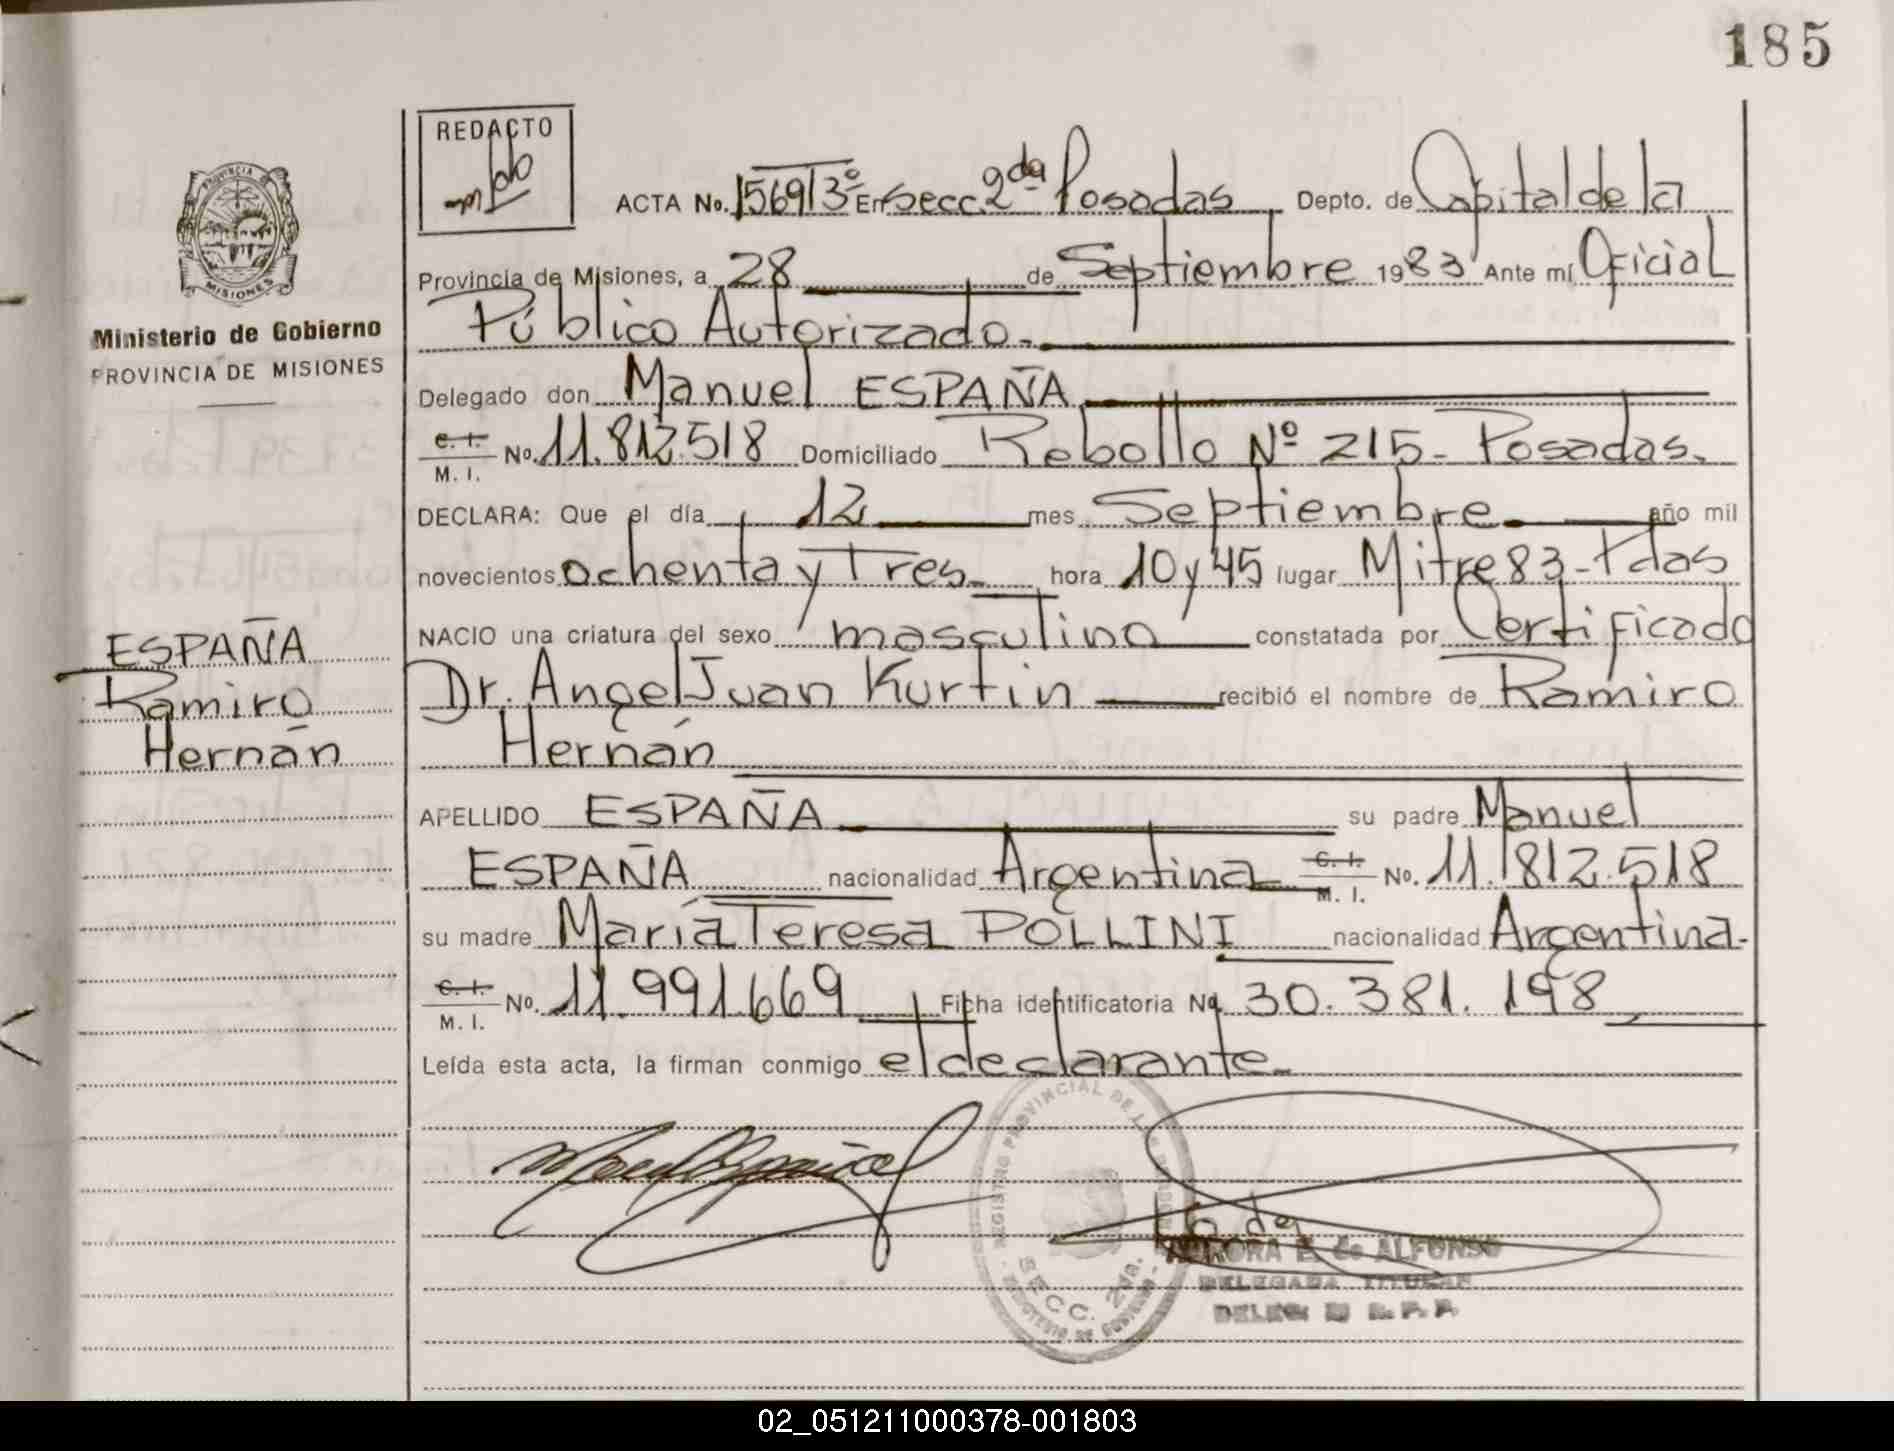 185
REDACTO
ACTA No. 1569/3º En Secc. 2da Posadas Depto. de Capital de la
PROVINCIA DE
MISIONES
Provincia de Misiones, a 28 de Septiembre 1983 Ante mí Oficial
Ministerio de Gobierno
Público Autorizado.-
PROVINCIA DE MISIONES
Delegado don Manuel ESPAÑA
C. I.
M. I. No. 11.812.518 Domiciliado Rebollo Nº 215- Posadas.
DECLARA: Que el día 12 mes Septiembre año mil
novecientos ochenta y Tres- hora 10 y 45 lugar Mitre 83- Pdas
NACIO una criatura del sexo masculino constatada por Certificado
ESPAÑA
Ramiro
Hernán
Dr. Angel Juan Kurtin recibió el nombre de Ramiro
Hernán
APELLIDO ESPAÑA su padre Manuel
ESPAÑA nacionalidad Argentina C. I. M. I. No. 11.812.518
su madre María Teresa POLLINI nacionalidad Argentina.-
C. I.
M. I. No. 11.991.669 Ficha identificatoria No. 30.381.198
Leída esta acta, la firman conmigo el declarante.-
REGISTRO PROVINCIAL DE LAS PERSONAS
SECC. 2da.
MINISTERIO DE GOBIERNO
AURORA E. de ALFONSO
DELEGADA TITULAR
02_051211000378-001803